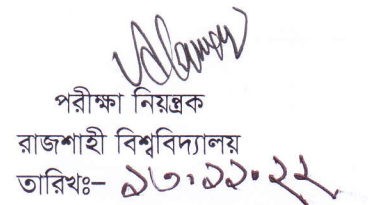 পরীক্ষা নিয়ন্ত্রক
রাজশাহী বিশ্ববিদ্যালয়
তারিখঃ– ১৩.১১.২২